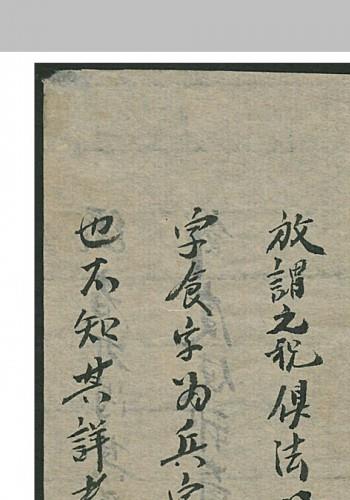 放謂之税俱法
字食字为兵字
也不知其詳者